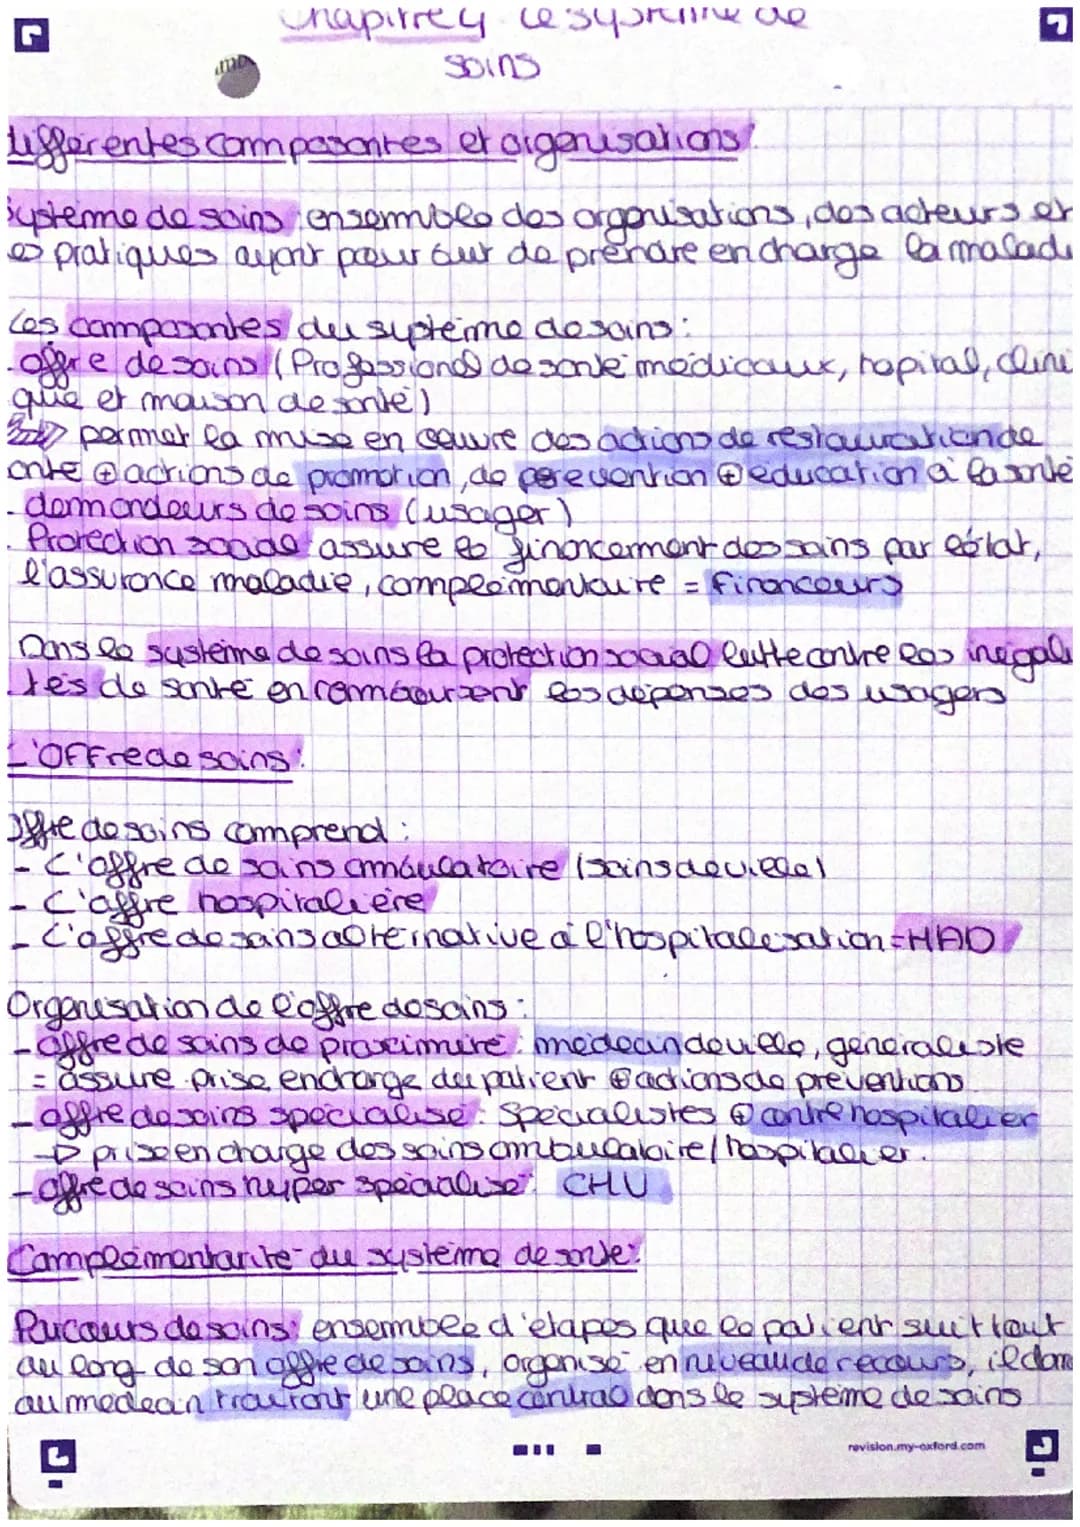 Chapitre 4 le système de
soins
différentes composantes et organisations:
Système de soins: ensemble des organisations, des acteurs et
es pratiques ayant pour but de prendre en charge la malad
Les composantes du système de soins:
- offre de soins (Professionel de santé médicaux, hopital, clini
que et maison de santé)
permet la mise en œuvre des actions de restauration de
anté ⊕ actions de promotion, de prévention ⊕ éducation à la santé
- demandeurs de soins (usager)
- Protection sociale assure le financement des soins par l'état,
l'assurance maladie, complémentaire = financeurs
Dans le système de soins la protection social lutte contre les inégali
tés de santé en remboursent les dépenses des usagers
L'OFFre de soins:
Offre de soins comprend:
- L'offre de soins ambulatoire (soins de ville)
- L'offre hospitalière
- L'offre de soins alternative à l'hospitalisation = HAD
Organisation de l'offre de soins:
- offre de soins de proximité: médecin de ville, généraliste
= assure prise en charge du patient ⊕ actions de préventions
- offre de soins spécialisé: Spécialistes ⊕ centre hospitalier
→ prise en charge des soins ambulatoire/hospitalier.
- offre de soins hyper spécialisé: CHU
Complémentarité du système de santé:
Parcours de soins: ensemble d'étapes que le patient suit tout
au long de son offre de soins, organisé en niveau de recours, il donn
au médecin traitant une place central dans le système de soins
revision.my-oxford.com